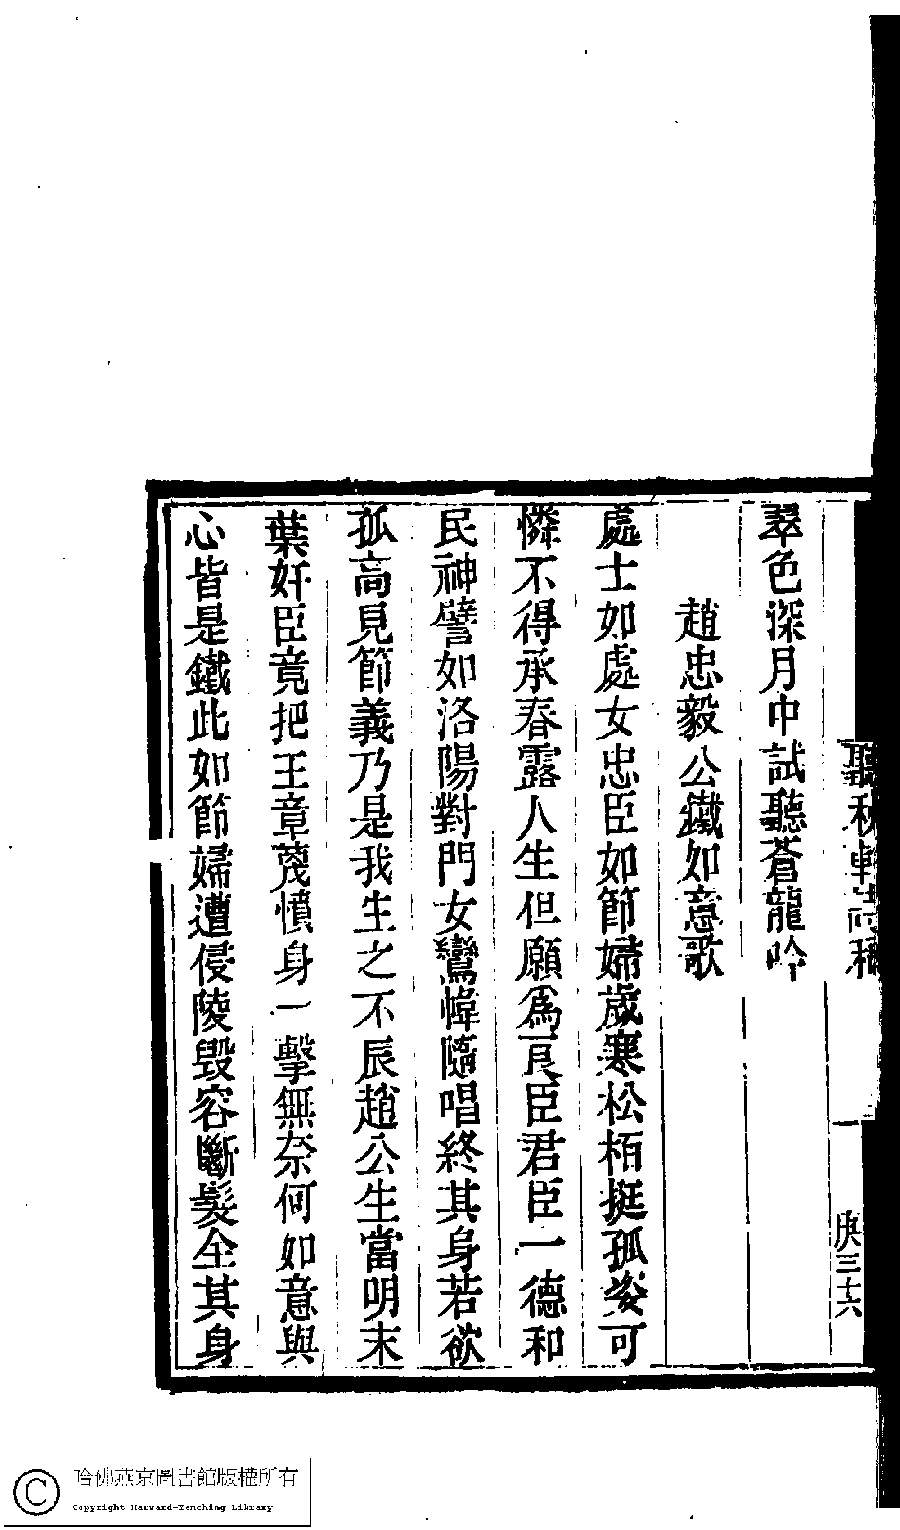 聽秋軒詩稿
一
庚三十六
翠色深月中試聽蒼龍吟
趙忠毅公鐵如意歌
處士如處女忠臣如節婦歲寒松栢挺孤姿可
憐不得承春露人生但願爲良臣君臣一德和
民神譬如洛陽對門女鸞幃隨唱終其身若欲
孤高見節義乃是我生之不辰趙公生當明末
葉奸臣竟把王章蔑憤身一擊無奈何如意與
心皆是鐵此如節婦遭侵陵毀容斷髮全其身
哈佛燕京圖書館版權所有
Copyright Harvard-Yenching Library